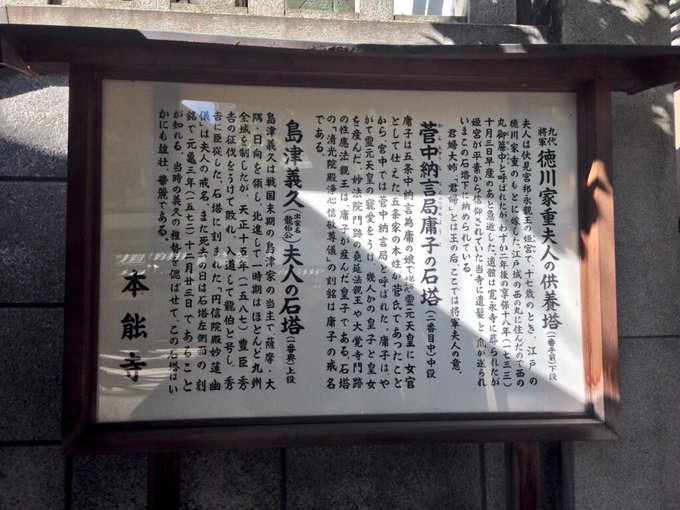 九代将軍 徳川家重夫人の供養塔(一番手前)下段
夫人は伏見宮邦永親王の姫宮で、十七歳のとき、江戸の
徳川家重のもとに稼した。江戸城の西の丸に住んだので西の
丸御簾中と呼ばれたが、わずか二年後の享保十八年(一七三三)
十月三日早産のあと急逝した。遺骸は寛永寺に葬られたが
姫宮が平素から信仰されていた当寺に遺髪と爪が送られ
いまこの石塔下に納められている。
君婦大姉、「君婦」とは王の后、ここでは将軍夫人の意、
菅中納言局庸子の石塔(二番目中)中段
庸子は五条中納言為庸の娘で
霊元天皇に女官
として仕えた。五条家の本性が菅氏であったこと
から、宮中では菅中納言局と呼ばれた。庸子はや
がて霊元天皇の寵愛をうけ、幾人かの皇子と皇女
を産んだ。妙法院門跡の尭延法親王や大覚寺門跡
の性應法親王は、庸子が産んだ皇子である。石塔
の「清光院殿浄心信敬尊儀」の刻銘は庸子の戒名
である。
島津義久(出家名龍伯公)夫人の石塔(一番奥)上段
島津義久は戦国末期の島津家の当主で、薩摩・大
隅・日向を領し、北進して一時期はほとんど九州
全域を制したが、天正十五年(一五八七)豊臣秀
吉の征伐をうけて敗れ、入道して龍伯と号し、秀
吉に臣従した。石塔に刻まれた「円信院殿妙蓮幽
儀」は夫人の戒名、また死去の日は石塔左側面の刻
銘で元亀三年(一五七二)十月廿三日であること
が知れる。当時の義久の権勢を偲ばせて、この石塔はい
かにも雄壮、華麗である。
本能寺